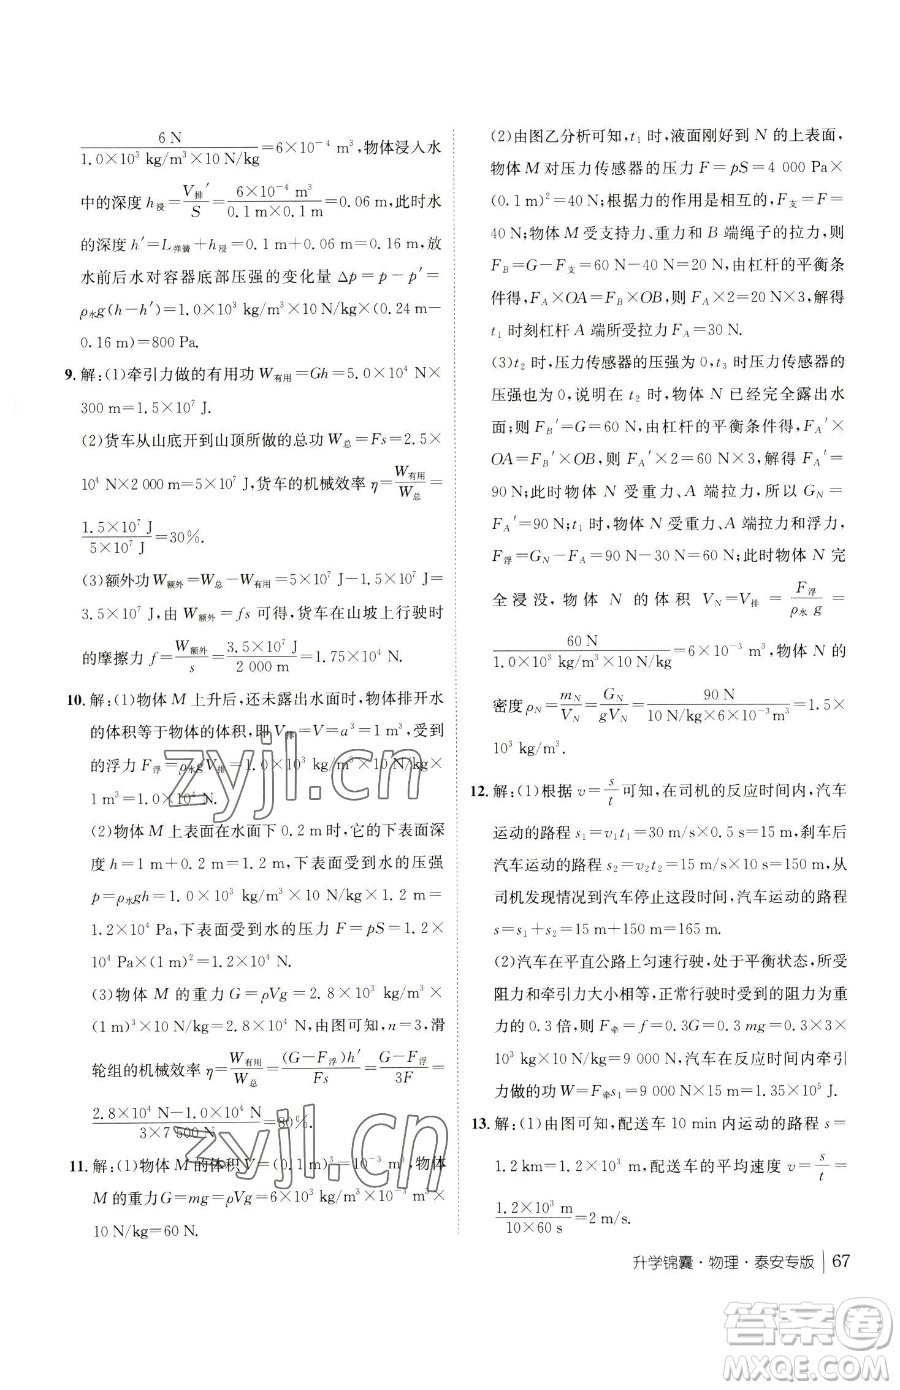 6 N
1.0×10³ kg/m³×10 N/kg =6×10⁻⁴ m³,物体浸入水
中的深度 h浸=V排′/S=6×10⁻⁴ m³/(0.1 m×0.1 m)=0.06 m,此时水
的深度 h′=L弹簧+h浸=0.1 m+0.06 m=0.16 m,放
水前后水对容器底部压强的变化量 Δp=p-p′=
ρ水g(h-h′)=1.0×10³ kg/m³×10 N/kg×(0.24 m-
0.16 m)=800 Pa.
9. 解:(1)牵引力做的有用功 W有用=Gh=5.0×10⁴ N×
300 m=1.5×10⁷ J.
(2)货车从山底开到山顶所做的总功 W总=Fs=2.5×
10⁴ N×2 000 m=5×10⁷ J,货车的机械效率 η=W有用/W总=
1.5×10⁷ J/5×10⁷ J=30%.
(3)额外功 W额外=W总-W有用=5×10⁷ J-1.5×10⁷ J=
3.5×10⁷ J,由 W额外=fs 可得,货车在山坡上行驶时
的摩擦力 f=W额外/s=3.5×10⁷ J/2 000 m=1.75×10⁴ N.
10. 解:(1)物体 M 上升后,还未露出水面时,物体排开水
的体积等于物体的体积,即 V排=V=a³=1 m³,受到
的浮力 F浮=ρ水gV排=1.0×10³ kg/m³×10 N/kg×
1 m³=1.0×10⁴ N.
(2)物体 M 上表面在水面下 0.2 m 时,它的下表面深
度 h=1 m+0.2 m=1.2 m,下表面受到水的压强
p=ρ水gh=1.0×10³ kg/m³×10 N/kg×1.2 m=
1.2×10⁴ Pa,下表面受到水的压力 F=pS=1.2×
10⁴ Pa×1 m²=1.2×10⁴ N.
(3)物体 M 的重力 G=ρVg=2.8×10³ kg/m³×
(1 m)³×10 N/kg=2.8×10⁴ N,由图可知,n=3,滑
轮组的机械效率 η=W有用/W总=(G-F浮)h′/Fs=(G-F浮)/3F=
(2.8×10⁴ N-1.0×10⁴ N)/(3×7 500 N)=80%.
11. 解:(1)物体 M 的体积 V=(0.1 m)³=10⁻³ m³,物体
M 的重力 G=mg=ρVg=6×10³ kg/m³×10⁻³ m³×
10 N/kg=60 N.
(2)由图乙分析可知,t₁ 时,液面刚好到 N 的上表面,
物体 M 对压力传感器的压力 F=pS=4 000 Pa×
(0.1 m)²=40 N;根据力的作用是相互的,F支=F=
40 N;物体 M 受支持力、重力和 B 端绳子的拉力,
F_B=G-F支=60 N-40 N=20 N,由杠杆的平衡条
件得,F_A×OA=F_B×OB,则 F_A×2=20 N×3,解得
t₁ 时刻杠杆 A 端所受拉力 F_A=30 N.
(3)t₂ 时,压力传感器的压强为 0,t₃ 时压力传感器
的压强也为 0,说明在 t₂ 时,物体 N 已经完全露出水
面;则 F_B′=G=60 N,由杠杆的平衡条件得,F_A′×
OA=F_B′×OB,则 F_A′×2=60 N×3,解得 F_A′=
90 N;此时物体 N 受重力、A 端拉力,则 G_N=
F_A′=90 N;t₁ 时,物体 N 受重力、A 端拉力和浮力,
F浮=G_N-F_A=90 N-30 N=60 N;此时物体 N 完
全浸没,物体 N 的体积 V_N=V排=F浮/ρ水g=
60 N/(1.0×10³ kg/m³×10 N/kg)=6×10⁻³ m³,物体 N 的
密度 ρ_N=m_N/V_N=G_N/gV_N=90 N/(10 N/kg×6×10⁻³ m³)=1.5×
10³ kg/m³.
12. 解:(1)根据 v=s/t 可知,在司机的反应时间内,汽车
运动的路程 s₁=v₁t₁=30 m/s×0.5 s=15 m,刹车后
汽车运动的路程 s₂=v₂t₂=15 m/s×10 s=150 m,从
司机发现情况到汽车停止这段时间,汽车运动的路程
s=s₁+s₂=15 m+150 m=165 m.
(2)汽车在平直公路上匀速行驶,处于平衡状态,所受
阻力和牵引力大小相等,正常行驶时受到的阻力为车重
的 0.3 倍,则 F牵=f=0.3G=0.3 mg=0.3×3×
10³ kg×10 N/kg=9 000 N,汽车在两地间牵引
力做的功 W=F牵s=9 000 N×90×10³ m=8.1×10⁸ J.
13. 解:(1)由图可知,配送车 10 min 内运动的路程 s=
1.2 km=1.2×10³ m,配送车的平均速度 v=s/t=
1.2×10³ m/(10×60 s)=2 m/s.
升学锦囊·物理·泰安专版 67
zyjl.cn
zyjl.cn
答案圈
MXQE.COM